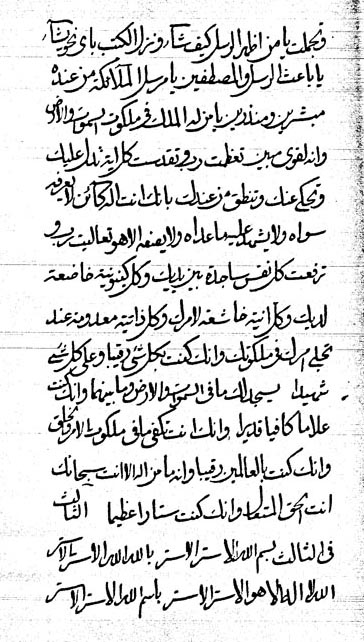 وتجملت يا من اظهر الرسل كيف شاء ونزل الكتب باى نحو شاء
يا باعث الرسل والمصطفين يا مرسل الملائكة من عنده
مبشرين ومنذرين يا من له الملك فى ملكوت السموات والارض
وانه لقوى مبين تعظمت و وتقدست كل اية تدل عليك
وتحكى عنك وتنطق من عندك بانك انت الذى لا يعرفه
سواه ولا يشهد عليه ما عداه ولا يصفه الا هو تعاليت و
ترفعت كل نفس ساجدة بين يديك وكل كينونية خاضعة
لديك وكل انية خاشعة لامرك وكل ذاتية معدومة عند
تجلى امرك فى ملكوتك وانك كنت بكل شئ رقيبا وعلى كل شئ
شهيدا يسجد لك ما فى السموات والارض وما بينهما وانك كنت
علاما كافيا قديرا وانك انت تكفى ما فى ملكوت الامر والخلق
وانك كنت بالعالمين رقيبا وانه ما من اله الا انت سبحانك
انت الحق المتعال وانك كنت ستارا عظيما الثالث
فى الثالث بسم الله الاستر الاستر بالله الله الاستر الاستر
الله لا اله الا هو الاستر الاستر باسم الله الاستر الاستر